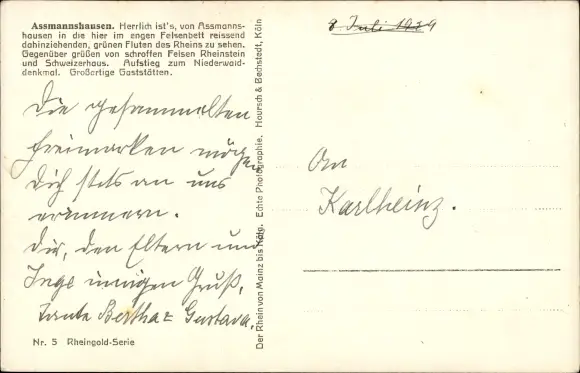 Assmannshausen. Herrlich ist's, von Assmanns-
hausen in die hier im engen Felsenbett reissend
dahinziehenden, grünen Fluten des Rheins zu sehen.
Gegenüber grüßen von schroffen Felsen Rheinstein
und Schweizerhaus. Aufstieg zum Niederwald-
denkmal. Großartige Gaststätten.
Die gesammelten
Freimarken mögen
Dich stets an uns
erinnern.
Dir, den Eltern und
Inge innigen Gruß,
Tante Bertha Gustava.
Nr. 5 Rheingold-Serie
Der Rhein von Mainz bis Köln. Echte Photographie. Hoursch & Bechstedt, Köln
8 Juli 1939
An
Karlheinz.